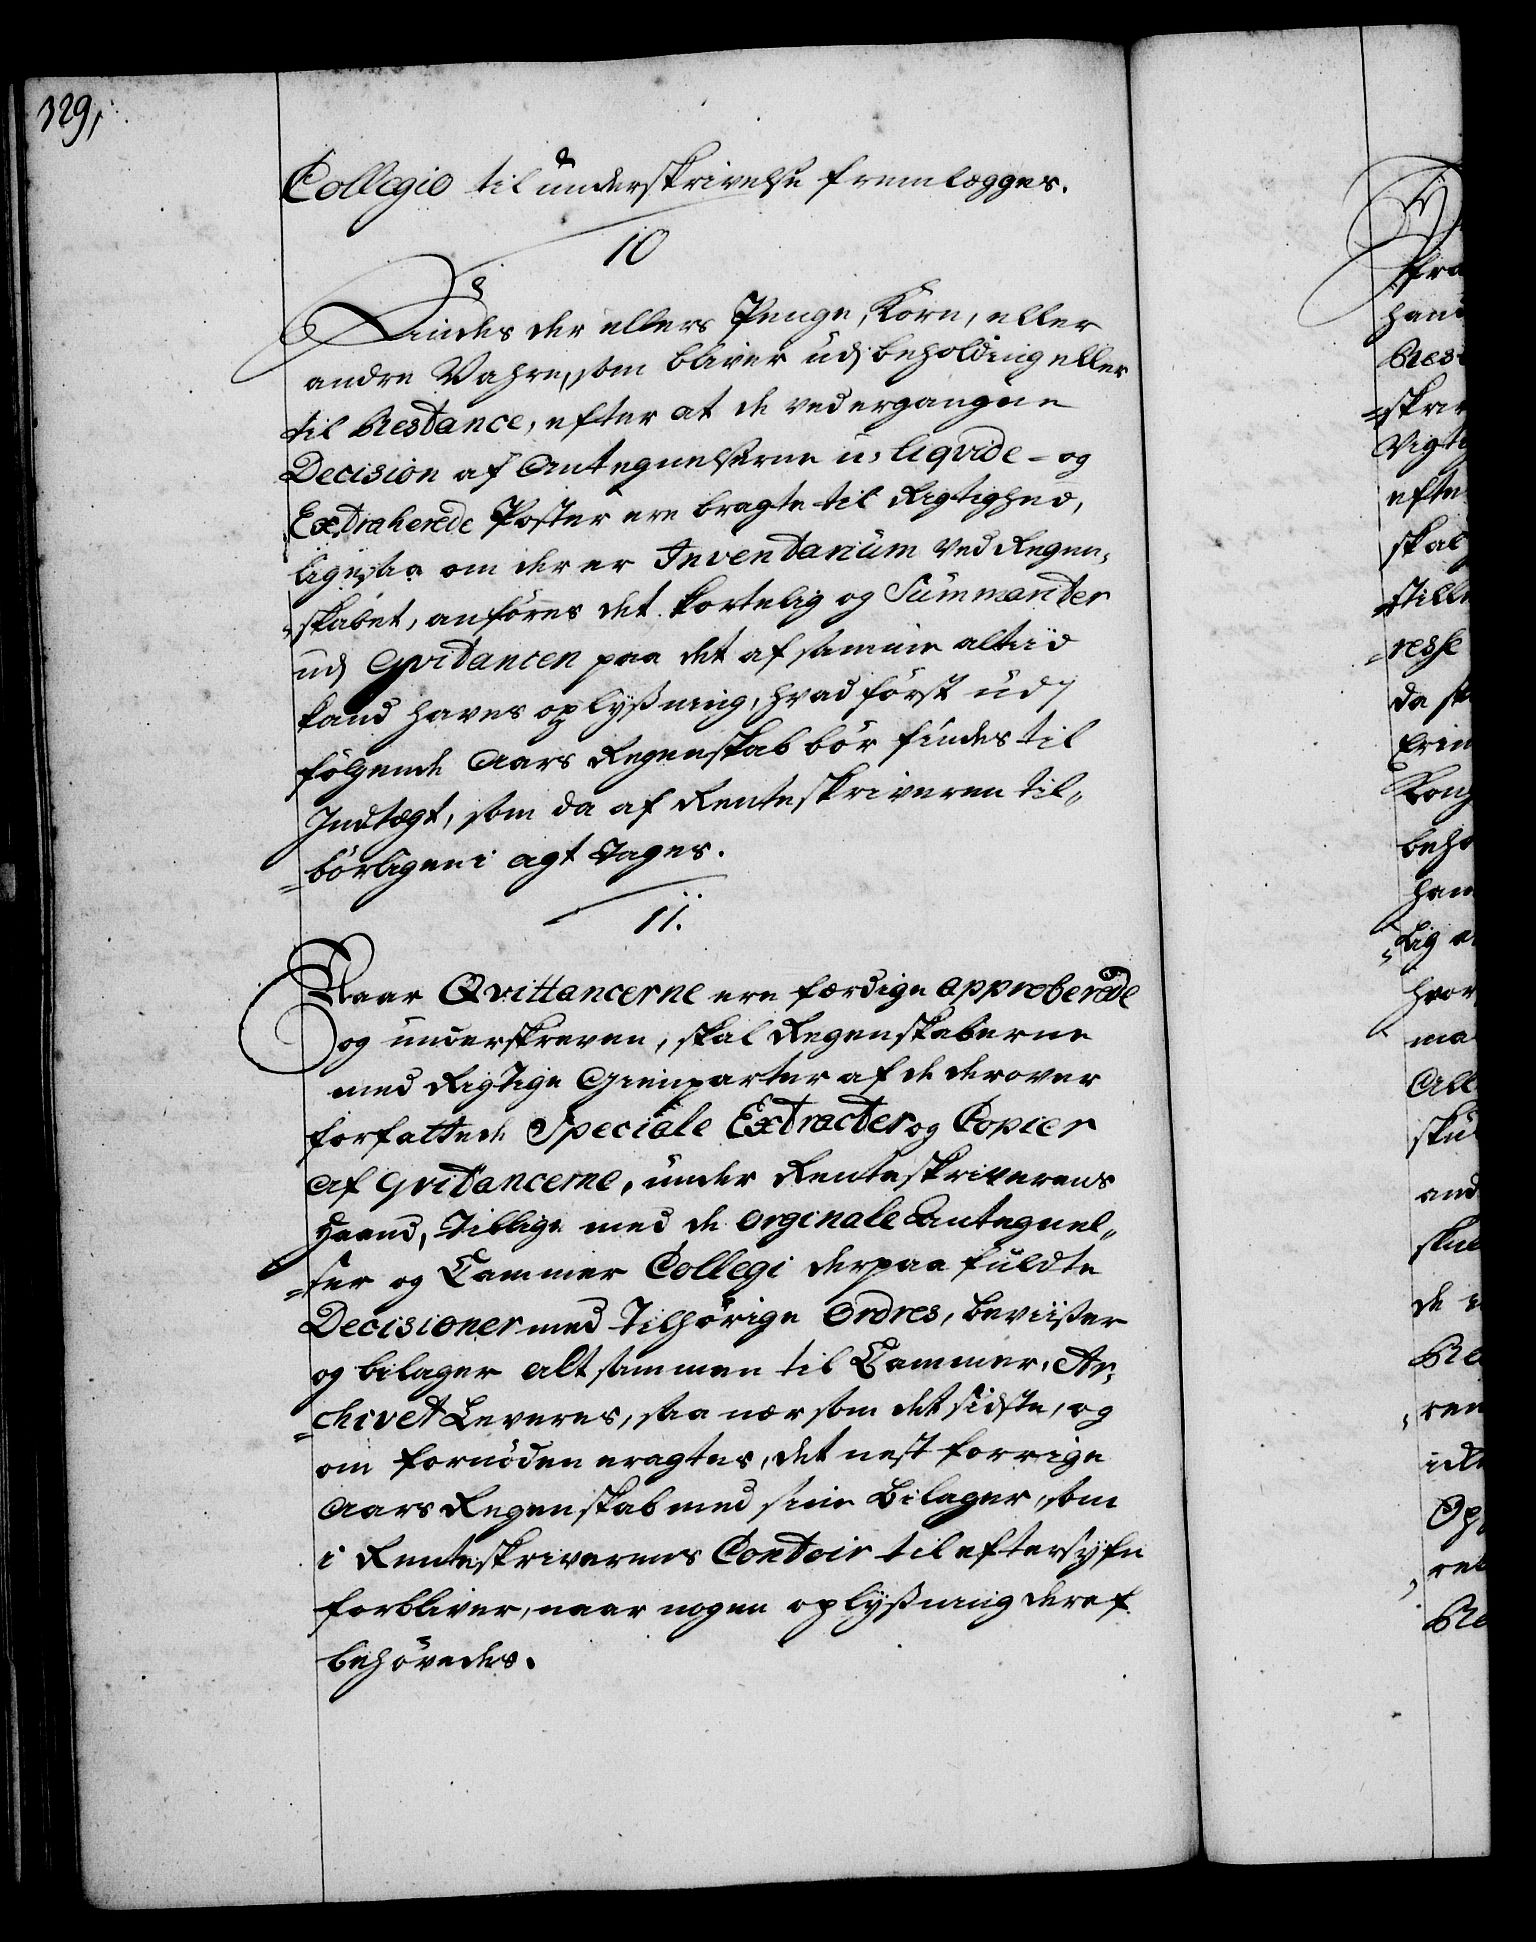 329,
Collegio til underskrivelse fremlægges.
10
Findes der ellers Penge, Korn, eller
andre Vahre, som bliver udj beholding eller
til Restance, efter at de ved ergangne
Decision af Antegnelserne u-liqvide- og
Extraherede Poster ere bragte til Rigtighed,
ligesaa om der er Inventarium ved Regen-
skabet, anføres det kortelig og Summariter
udj Qvitancen paa det af samme altiid
kand haves oplysßning, hvad først udj
følgende Aars Regenskab bør findes til
Indtægt, som da af Renteskriveren til-
børligen i agt tages.
11.
Naar Qvittancerne ere færdige approberede
og underskreven, skal Regenskaberne
med Rigtige Gienparter af de derover
forfattede Speciale Extracter og Copier
af qvitancerne, under Renteskriverens
Haand, tillige med de orginale Antegnel-
ser og Cammer Collegi derpaa fuldte
Decisioner med tilhørige Ordres, beviißer
og bilager alt sammen til Cammer-Ar-
chivet Leveres, saa nær som det sidste, og
om fornøden eragtes, det nest forrige
Aars Regenskab med sine Bilager, som
i Renteskriverens Contoir til eftersyfn
forbliver, naar nogen oplysßning deraf
behøvedes.